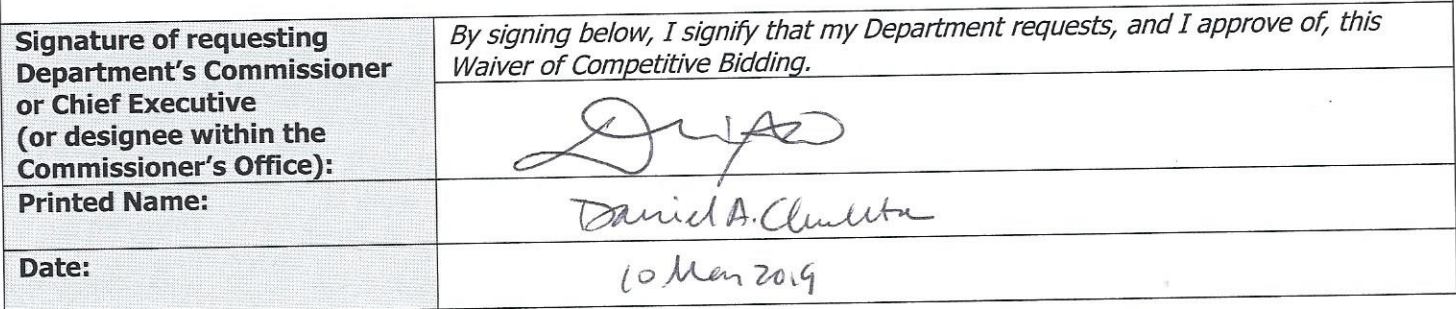 Signature of requesting
Department's Commissioner
or Chief Executive
(or designee within the
Commissioner's Office):
By signing below, I signify that my Department requests, and I approve of, this
Waiver of Competitive Bidding.
Printed Name:
Daniel A.
Date:
10 2019